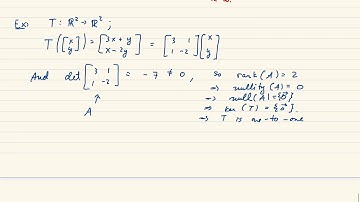 Ex: T: ℝ² → ℝ² ;
T([x y]) = [3x + y x - 2y] = [3 1 1 -2] [x y]
And det [3 1 1 -2] = -7 ≠ 0, so rank(A) = 2
⇒ nullity(A) = 0
⇒ null(A) = {0⃗}
A ⇒ ker(T) = {0⃗}.
⇒ T is one-to-one